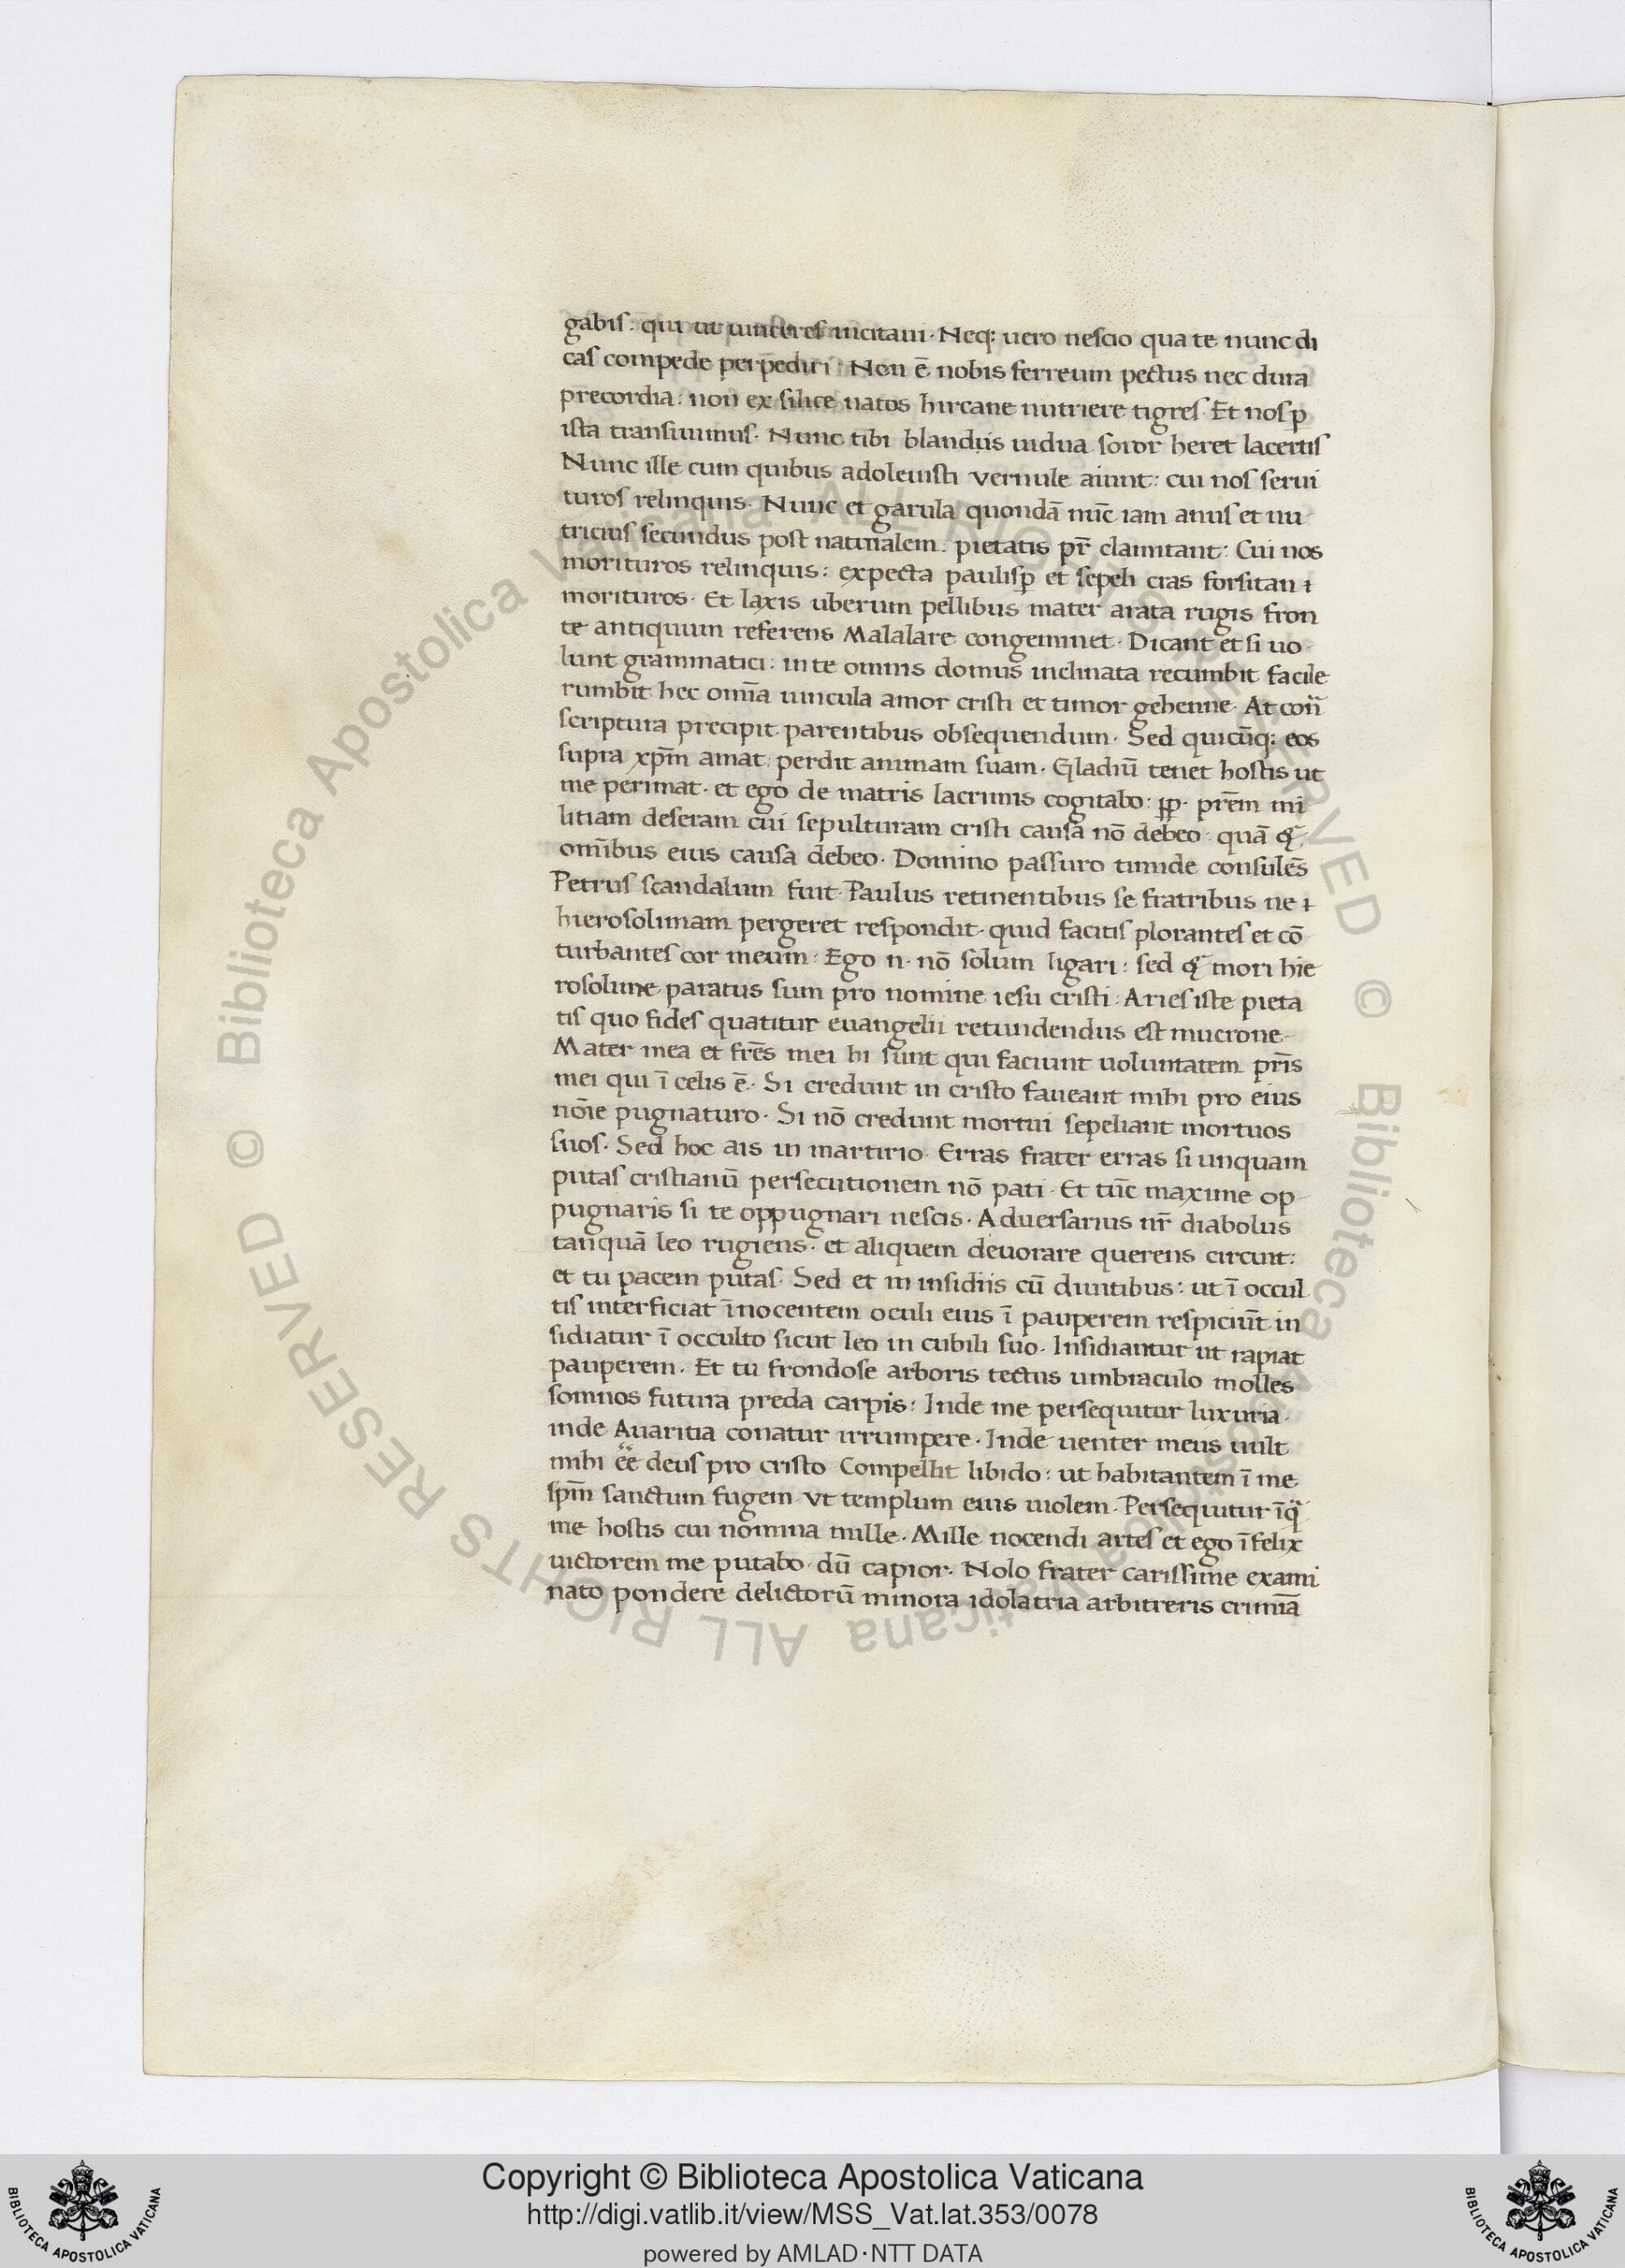 gabis: qui ut uinceres incitaui. Neq; uero nescio qua te nunc di
cas compede perpediri: Non ē nobis ferreum pectus nec dura
precordia: non ex silice natos hircane nutriere tigres. Et nos ꝑ
ista transiuimus. Nunc tibi blandiis uidua soror heret lacertis
Nunc ille cum quibus adoleuisti vernule aiunt: cui nos serui
turos relinquis. Nunc et garula quondā nūc iam anus et nu
tricius secundus post naturalem. pietatis pr̄ clamitant: Cui nos
morituros relinquis: expecta paulisꝑ et sepeli cras forsitan ⁊
morituros. Et laxis uberum pellibus mater arata rugis fron
te antiquum referens Malalare congeminet. Dicant et si uo
lunt grammatici: in te omnis domus inclinata recumbit facile
rumbit hec om̄a uincula amor cristi et timor gehenne. At con̄
scriptura precipit parentibus obsequendum. Sed quicūq; eos
supra xp̄m amat: perdit animam suam. Gladiū tenet hostis ut
me perimat. et ego de matris lacrimis cogitabo: pp. prēm mi
litiam deseram cui sepulturam cristi causa nō debeo. quā &
om̄ibus eius causa debeo. Domino passuro timide consulēs
Petrus scandalum fuit. Paulus retinentibus se fratribus ne ⁊
hierosolimam pergeret respondit. quid facitis plorantes et cō
turbantes cor meum: Ego n. nō solum ligari: sed & mori hie
rosolime paratus sum pro nomine iesu cristi: Aries iste pieta
tis quo fides quatitur euangelii retundendus est mucrone
Mater mea et frēs mei hi sunt qui faciunt uoluntatem pr̄is
mei qui ī celis ē. Si credunt in cristo faueant mihi pro eius
nōie pugnaturo. Si nō credunt mortui sepeliant mortuos
suos. Sed hoc ais in martirio. Erras frater erras si unquam
putas cristianū persecutionem nō pati. Et tūc maxime op
pugnaris si te oppugnari nescis. Aduersarius nr̄ diabolus
tanquā leo rugiens. et aliquem deuorare querens circuit:
et tu pacem putas. Sed et in insidiis cū diuitibus: ut ī occul
tis interficiat īnocentem oculi eius ī pauperem respiciūt in
sidiatur ī occulto sicut leo in cubili suo. Insidiantur ut rapiat
pauperem. Et tu frondose arboris tectus umbraculo molles
somnos futura preda carpis: Inde me persequitur luxuria.
inde Auaritia conatur irrumpere. Inde uenter meus uult
mihi ēē deus pro cristo Compellit libido: ut habitantem ī me
spm̄ sanctum fugem. vt templum eius uiolem. Persequitur īq̄
me hostis cui nomina mille. Mille nocendi artes et ego īfelix
uictorem me putabo. dū capior. Nolo frater carissime exami
nato pondere delictorū minora idolatria arbitreris crimīa
© Biblioteca Apostolica Vaticana ALL RIGHTS RESERVED © Biblioteca Apostolica Vaticana ALL RIGHTS RESERVED
Copyright © Biblioteca Apostolica Vaticana
http://digi.vatlib.it/view/MSS_Vat.lat.353/0078
powered by AMLAD·NTT DATA
BIBLIOTECA APOSTOLICA VATICANA
BIBLIOTECA APOSTOLICA VATICANA